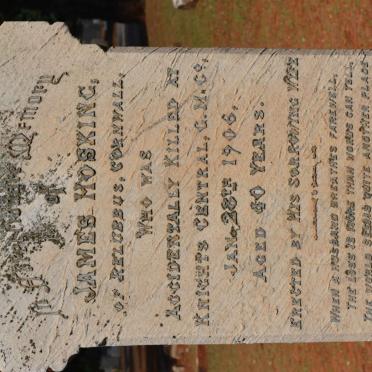 In Loving Memory
of
JAMES HOSKING,
OF RELUBBUS, CORNWALL,
WHO WAS
ACCIDENTALLY KILLED AT
KNIGHTS CENTRAL, G.M.Co.,
JAN. 28TH 1906,
AGED 40 YEARS.
ERECTED BY HIS SORROWING WIFE
WHEN A HUSBAND BREATHES FAREWELL,
THE LOSS IS MORE THAN WORDS CAN TELL,
THE WORLD SEEMS QUITE ANOTHER PLACE